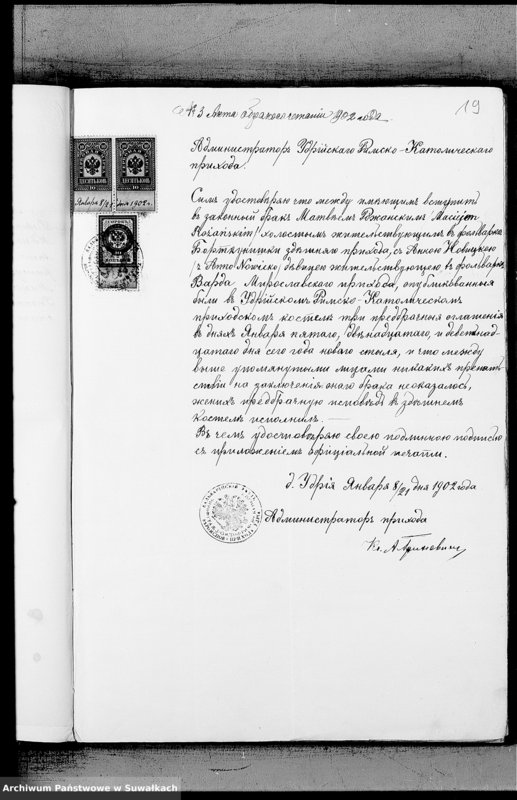 19
№ 3 Акта бракосочетанія 1902 года.
ДЕСЯТЬ КОП.
ДЕСЯТЬ КОП.
10
10
Января 8/21 дня 1902 г.
Администраторъ Удрійскаго Римско-Католическаго
прихода.
Симъ удостовѣряю что между имѣющимъ вступить
въ законный бракъ Матвѣемъ Рожанскимъ /Maciejem
Rożańskim/ холостымъ жительствующимъ въ фольваркѣ
Борткунишки здѣшняго прихода, съ Анною Новицкою
/z Anną Nowicką/ дѣвицею жительствующею въ фольваркѣ
Варда Мирославскаго прихода, опубликованныя
были въ Удрійскомъ Римско-Католическомъ
приходскомъ костелѣ три предбрачныя оглашенія
въ дняхъ Января пятаго, двѣнадцатаго, и девятнад-
цатаго дня сего года новаго стиля, и что между
выше упомянутыми лицами никакихъ препят-
ствій на заключенія онаго брака неоказалось,
женихъ предбрачную исповѣдь въ здѣшнемъ
костелѣ исполнилъ. —
Въ чемъ удостовѣряю своею подлинною подписью
съ приложеніемъ официальной печати.
д. Удрія Января 8/21 дня 1902 года
Администраторъ прихода
Кс. А.
Archiwum Państwowe w Suwałkach